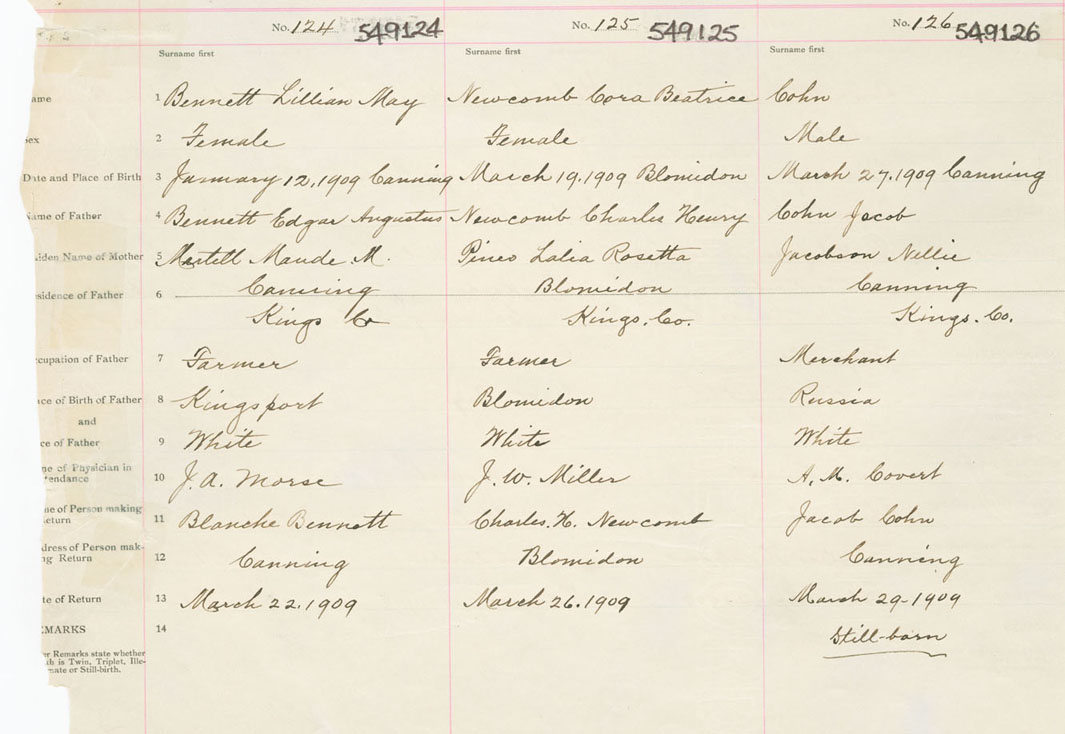 No. 124 549124 No. 125 549125 No. 126 549126
Surname first Surname first Surname first
ame 1 Bennett Lillian May Newcomb Cora Beatrice Cohn
ex 2 Female Female Male
Date and Place of Birth 3 January 12, 1909 Canning March 19. 1909 Blomidon March 27. 1909 Canning
Name of Father 4 Bennett Edgar Augustus Newcomb Charles Henry Cohn Jacob
iden Name of Mother 5 Maude M. Pineo Lalia Rosetta Jacobson Nellie
esidence of Father 6 Canning Blomidon Canning
Kings Co Kings. Co. Kings. Co.
cupation of Father 7 Farmer Farmer Merchant
ace of Birth of Father 8 Kingsport Blomidon Russia
and
ce of Father 9 White White White
ne of Physician in
tendance 10 J. A. Morse J. W. Miller A. M. Covert
ne of Person making
eturn 11 Blanche Bennett Charles. H. Newcomb Jacob Cohn
dress of Person mak-
ng Return 12 Canning Blomidon Canning
te of Return 13 March 22. 1909 March 26. 1909 March 29-1909
EMARKS 14 Still-born
er Remarks state whether
th is Twin, Triplet, Ille-
mate or Still-birth.